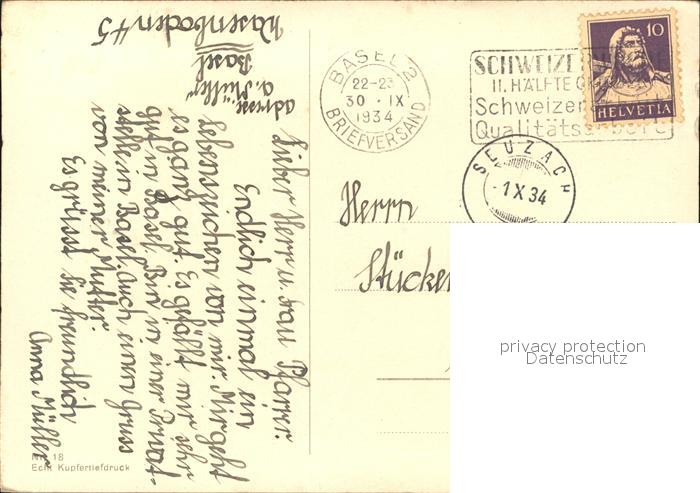 BASEL 2
22-23
30 · IX
1934
BRIEFVERSAND
SCHWEIZE
II. HÄLFTE
Schweizer
Qualitäts
10
HELVETIA
SEUZACH
-1 X 34
Herrn
Stücke
privacy protection
Datenschutz
adresse
A. Müller
Basel
Wasenboden 45
Lieber Herr u. Frau Pfarrer.
Endlich einmal ein
Lebenszeichen von mir. Mir geht
es ganz gut. Es gefällt mir sehr
gut in Basel. Bin in einer Privat-
stelle in Basel. Auch einen Gruss
von meiner Mutter.
Es grüsst Sie freundlich
Anna Müller
18
Echt Kupfertiefdruck